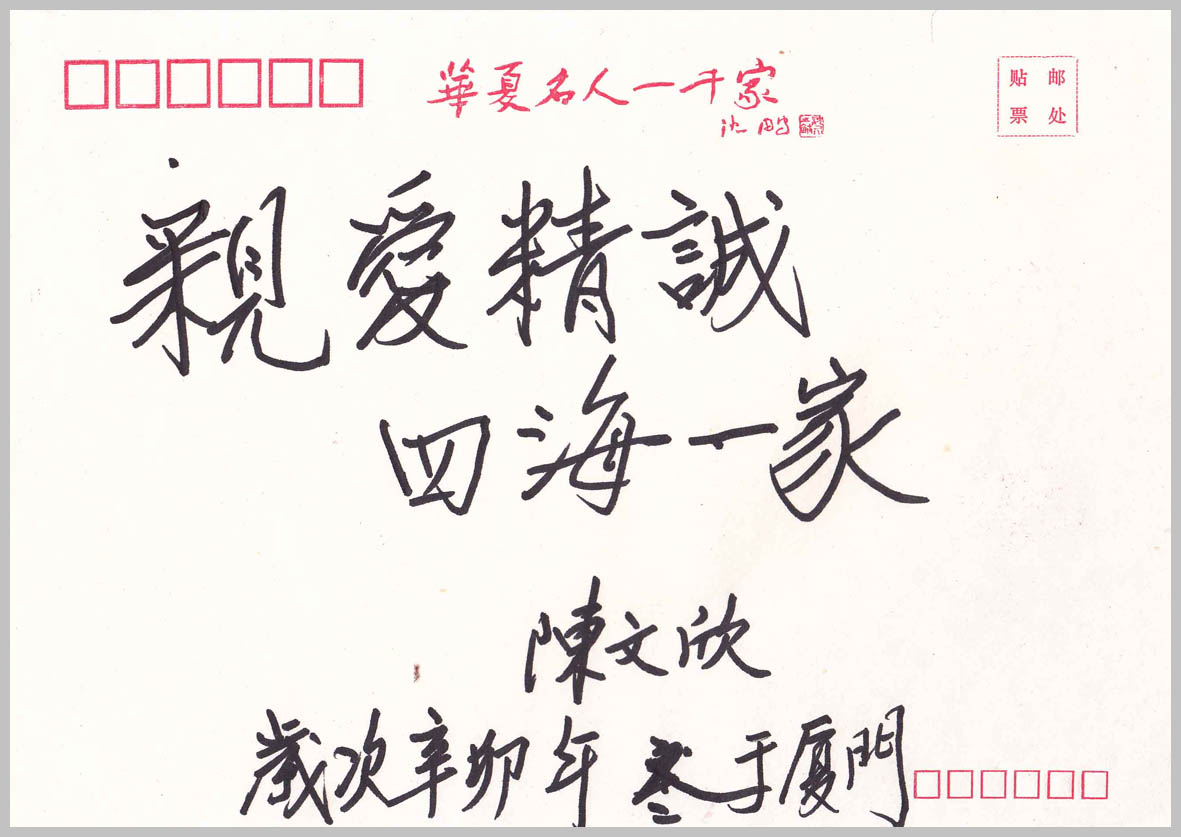 華夏名人一千家
沈鹏
贴邮
票处
親愛精誠
四海一家
陳文欣
歲次辛卯年冬于厦門